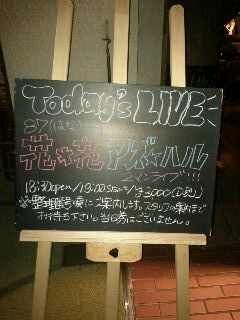 Today's LIVE
87(はな)
花✩花 アズ☆ハル
2マンライブ!!!
18:30open/19:00start/¥3000(D別)
※整理番号順にご案内します。スタッフの案内まで
お待ち下さい。当日券はございません。